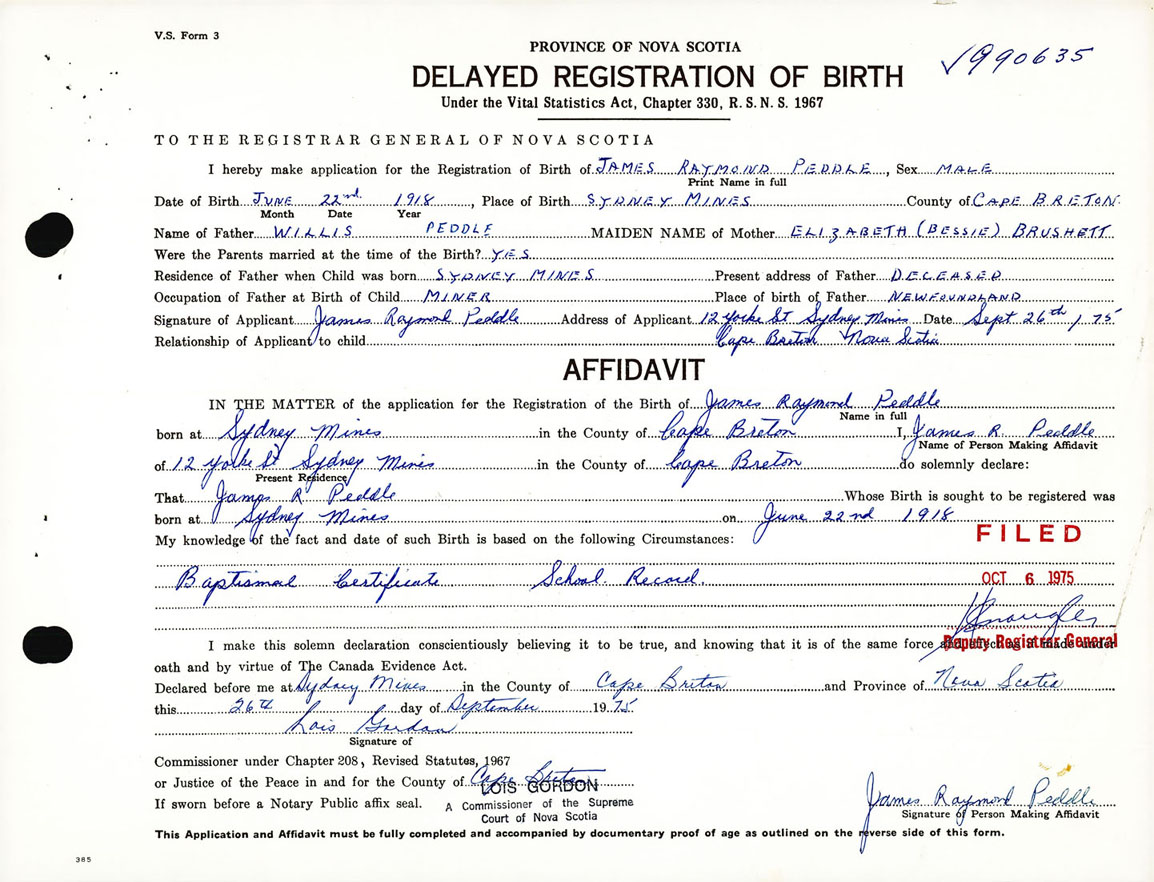 V.S. Form 3
PROVINCE OF NOVA SCOTIA
√990635
DELAYED REGISTRATION OF BIRTH
Under the Vital Statistics Act, Chapter 330, R.S.N.S. 1967
TO THE REGISTRAR GENERAL OF NOVA SCOTIA
I hereby make application for the Registration of Birth of JAMES RAYMOND PEDDLE, Sex MALE
Print Name in full
Date of Birth JUNE 22nd. 1918, Place of Birth SYDNEY MINES County of CAPE BRETON.
Month Date Year
Name of Father WILLIS PEDDLE MAIDEN NAME of Mother ELIZABETH (BESSIE) BRUSHETT
Were the Parents married at the time of the Birth? YES
Residence of Father when Child was born SYDNEY MINES Present address of Father DECEASED
Occupation of Father at Birth of Child MINER Place of birth of Father NEWFOUNDLAND
Signature of Applicant James Raymond Peddle Address of Applicant 12 Yorke St Sydney Mines Date Sept 26th / 75
Relationship of Applicant to child Cape Breton Nova Scotia
AFFIDAVIT
IN THE MATTER of the application for the Registration of the Birth of James Raymond Peddle
Name in full
born at Sydney Mines in the County of Cape Breton I, James R. Peddle
Name of Person Making Affidavit
of 12 Yorke St Sydney Mines in the County of Cape Breton do solemnly declare:
Present Residence
That James R Peddle Whose Birth is sought to be registered was
born at Sydney Mines on June 22nd 1918
My knowledge of the fact and date of such Birth is based on the following Circumstances:
FILED
Baptismal Certificate School Record.
OCT 6 1975
Deputy Registrar General
I make this solemn declaration conscientiously believing it to be true, and knowing that it is of the same force and effect as if made under
oath and by virtue of The Canada Evidence Act.
Declared before me at Sydney Mines in the County of Cape Breton and Province of Nova Scotia
this 26th day of September 1975
Lois Gordon
Signature of
Commissioner under Chapter 208, Revised Statutes, 1967
or Justice of the Peace in and for the County of Cape Breton
LOIS GORDON
If sworn before a Notary Public affix seal. A Commissioner of the Supreme
Court of Nova Scotia
James Raymond Peddle
Signature of Person Making Affidavit
This Application and Affidavit must be fully completed and accompanied by documentary proof of age as outlined on the reverse side of this form.
385